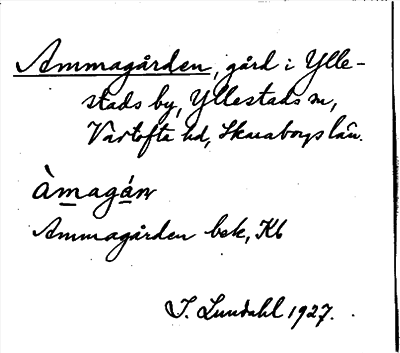 Ammagården, gård i Ylle-
stads by, Yllestads sn,
Vartofta hd, Skaraborgs län.
àmagáṉ
Ammagården bek, Kb
I. Lundahl 1927.